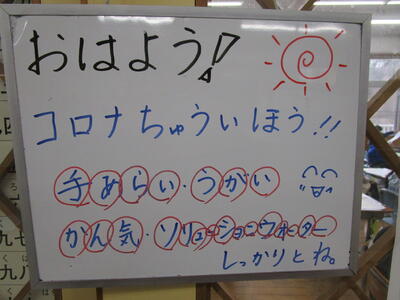 おはよう!
コロナちゅういほう!!
手あらい・うがい
かん気・ソリューションウォーター
しっかりとね。